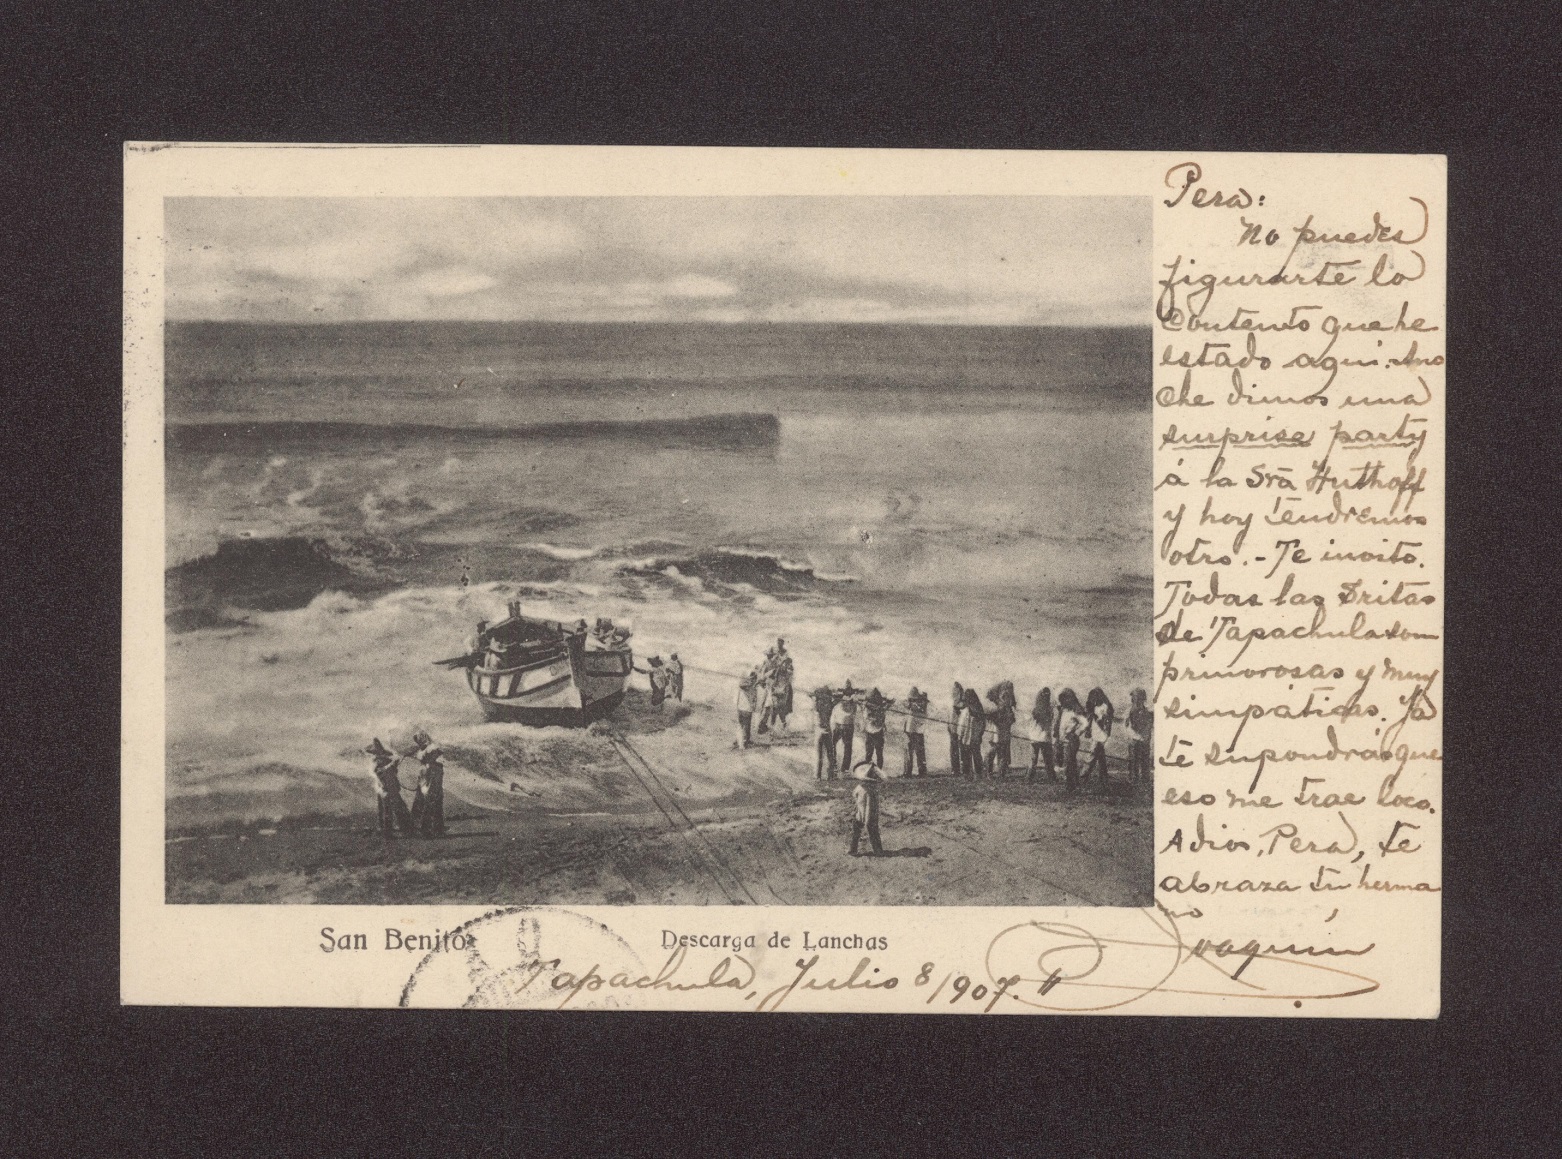 Pera:
No puedes
figurarte lo
contento que he
estado aquí. Ano
che dimos una
surprise party
á la Srã Huthoff
y hoy tendremos
otro. - Te invito.
Todas las Sritas
de Tapachula son
primorosas y muy
simpáticas. Ya
te supondrás que
eso me trae loco.
Adios, Pera, te
abraza tu herma
no
Joaquín
San Benito
Descarga de Lanchas
Tapachula, Julio 8/907.